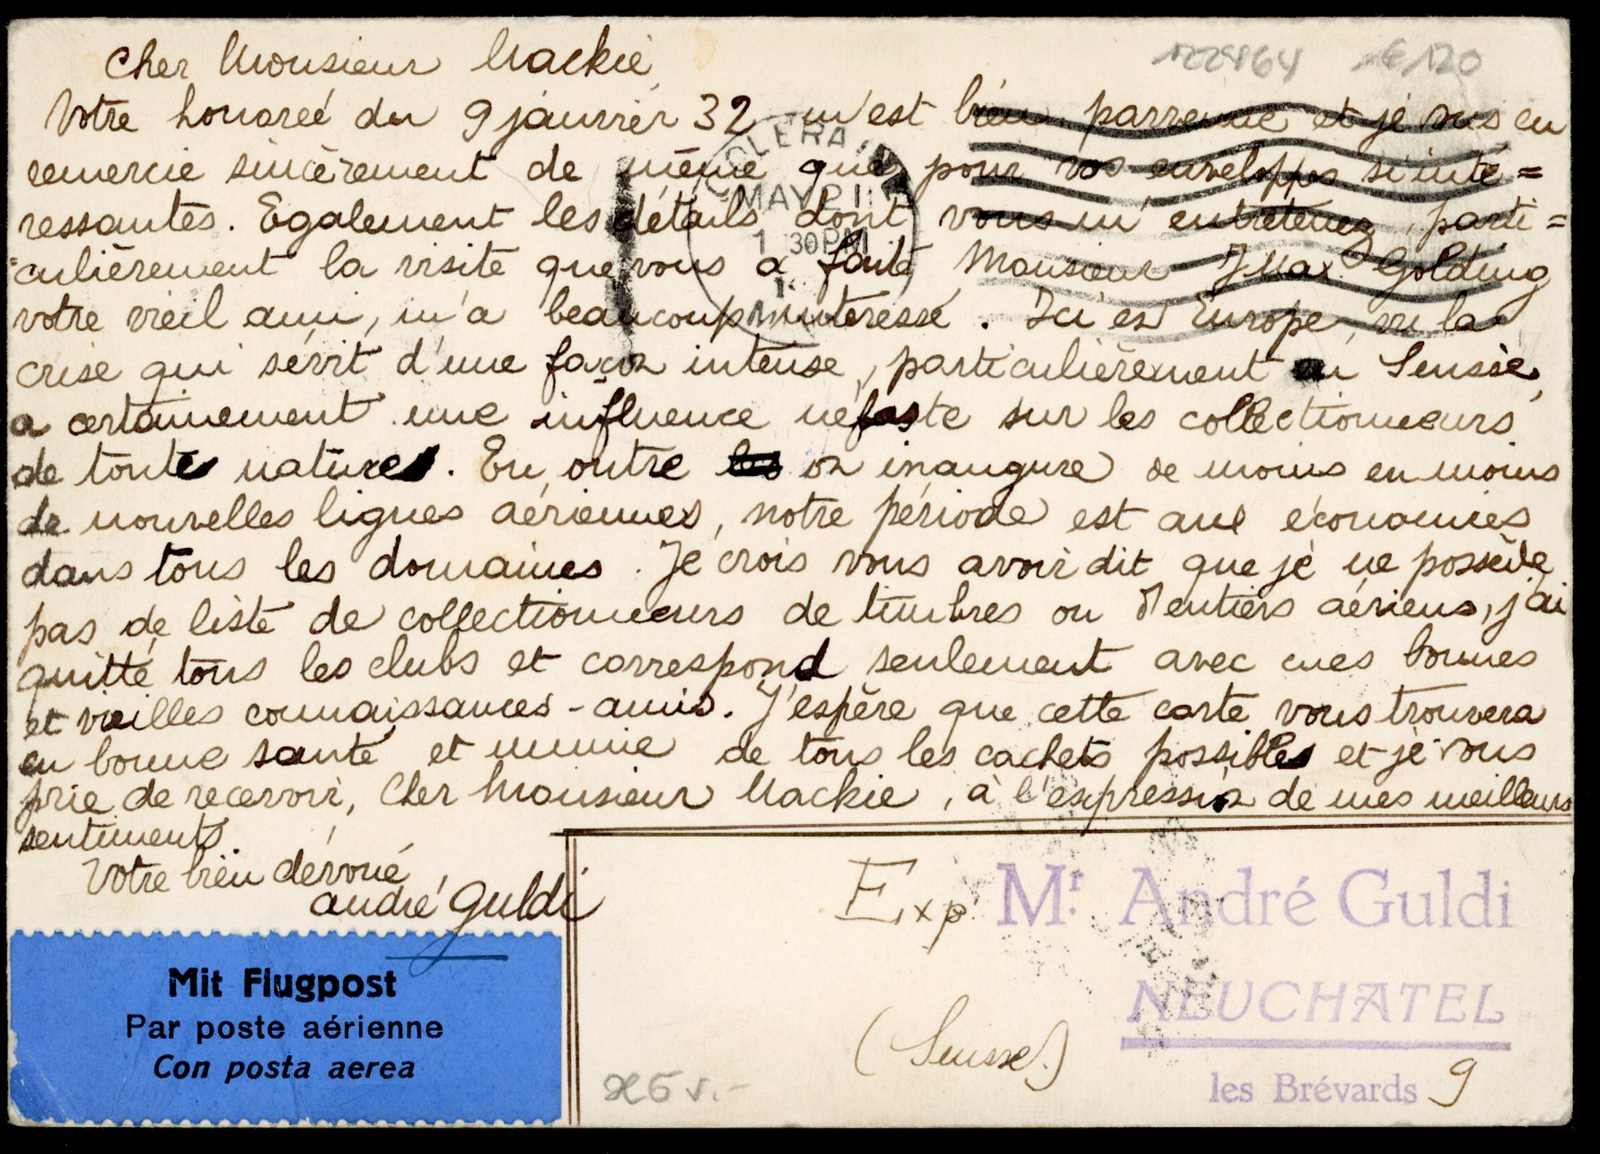 Cher Monsieur Mackie,
1224864 €120
Votre honorée du 9 janvier 32 m'est bien parvenue et je vous en
remercie sincèrement de même que pour vos enveloppes si inté=
ressantes. Egalement les détails dont vous m'entretenez, parti=
=culièrement la visite que vous a faite Monsieur Max Golding
votre vieil ami, m'a beaucoup intéressé. Ici en Europe, vu la
crise qui sévit d'une façon intense, particulièrement en Suisse,
a certainement une influence néfaste sur les collectionneurs
de toutes natures. En outre on inaugure de moins en moins
de nouvelles lignes aériennes, notre période est aux économies
dans tous les domaines. Je crois vous avoir dit que je ne possède
pas de liste de collectionneurs de timbres ou d'entiers aériens, j'ai
quitté tous les clubs et correspond seulement avec mes bonnes
et vieilles connaissances - amis. J'espère que cette carte vous trouvera
en bonne santé et munie de tous les cachets possibles et je vous
prie de recevoir, Cher Monsieur Mackie, à l'expression de mes meilleurs
sentiments.
Votre bien dévoué,
André Guldi
MAY
1 30PM
Mit Flugpost
Par poste aérienne
Con posta aerea
Exp. Mr. André Guldi
NEUCHATEL
(Suisse.)
les Brévards 9